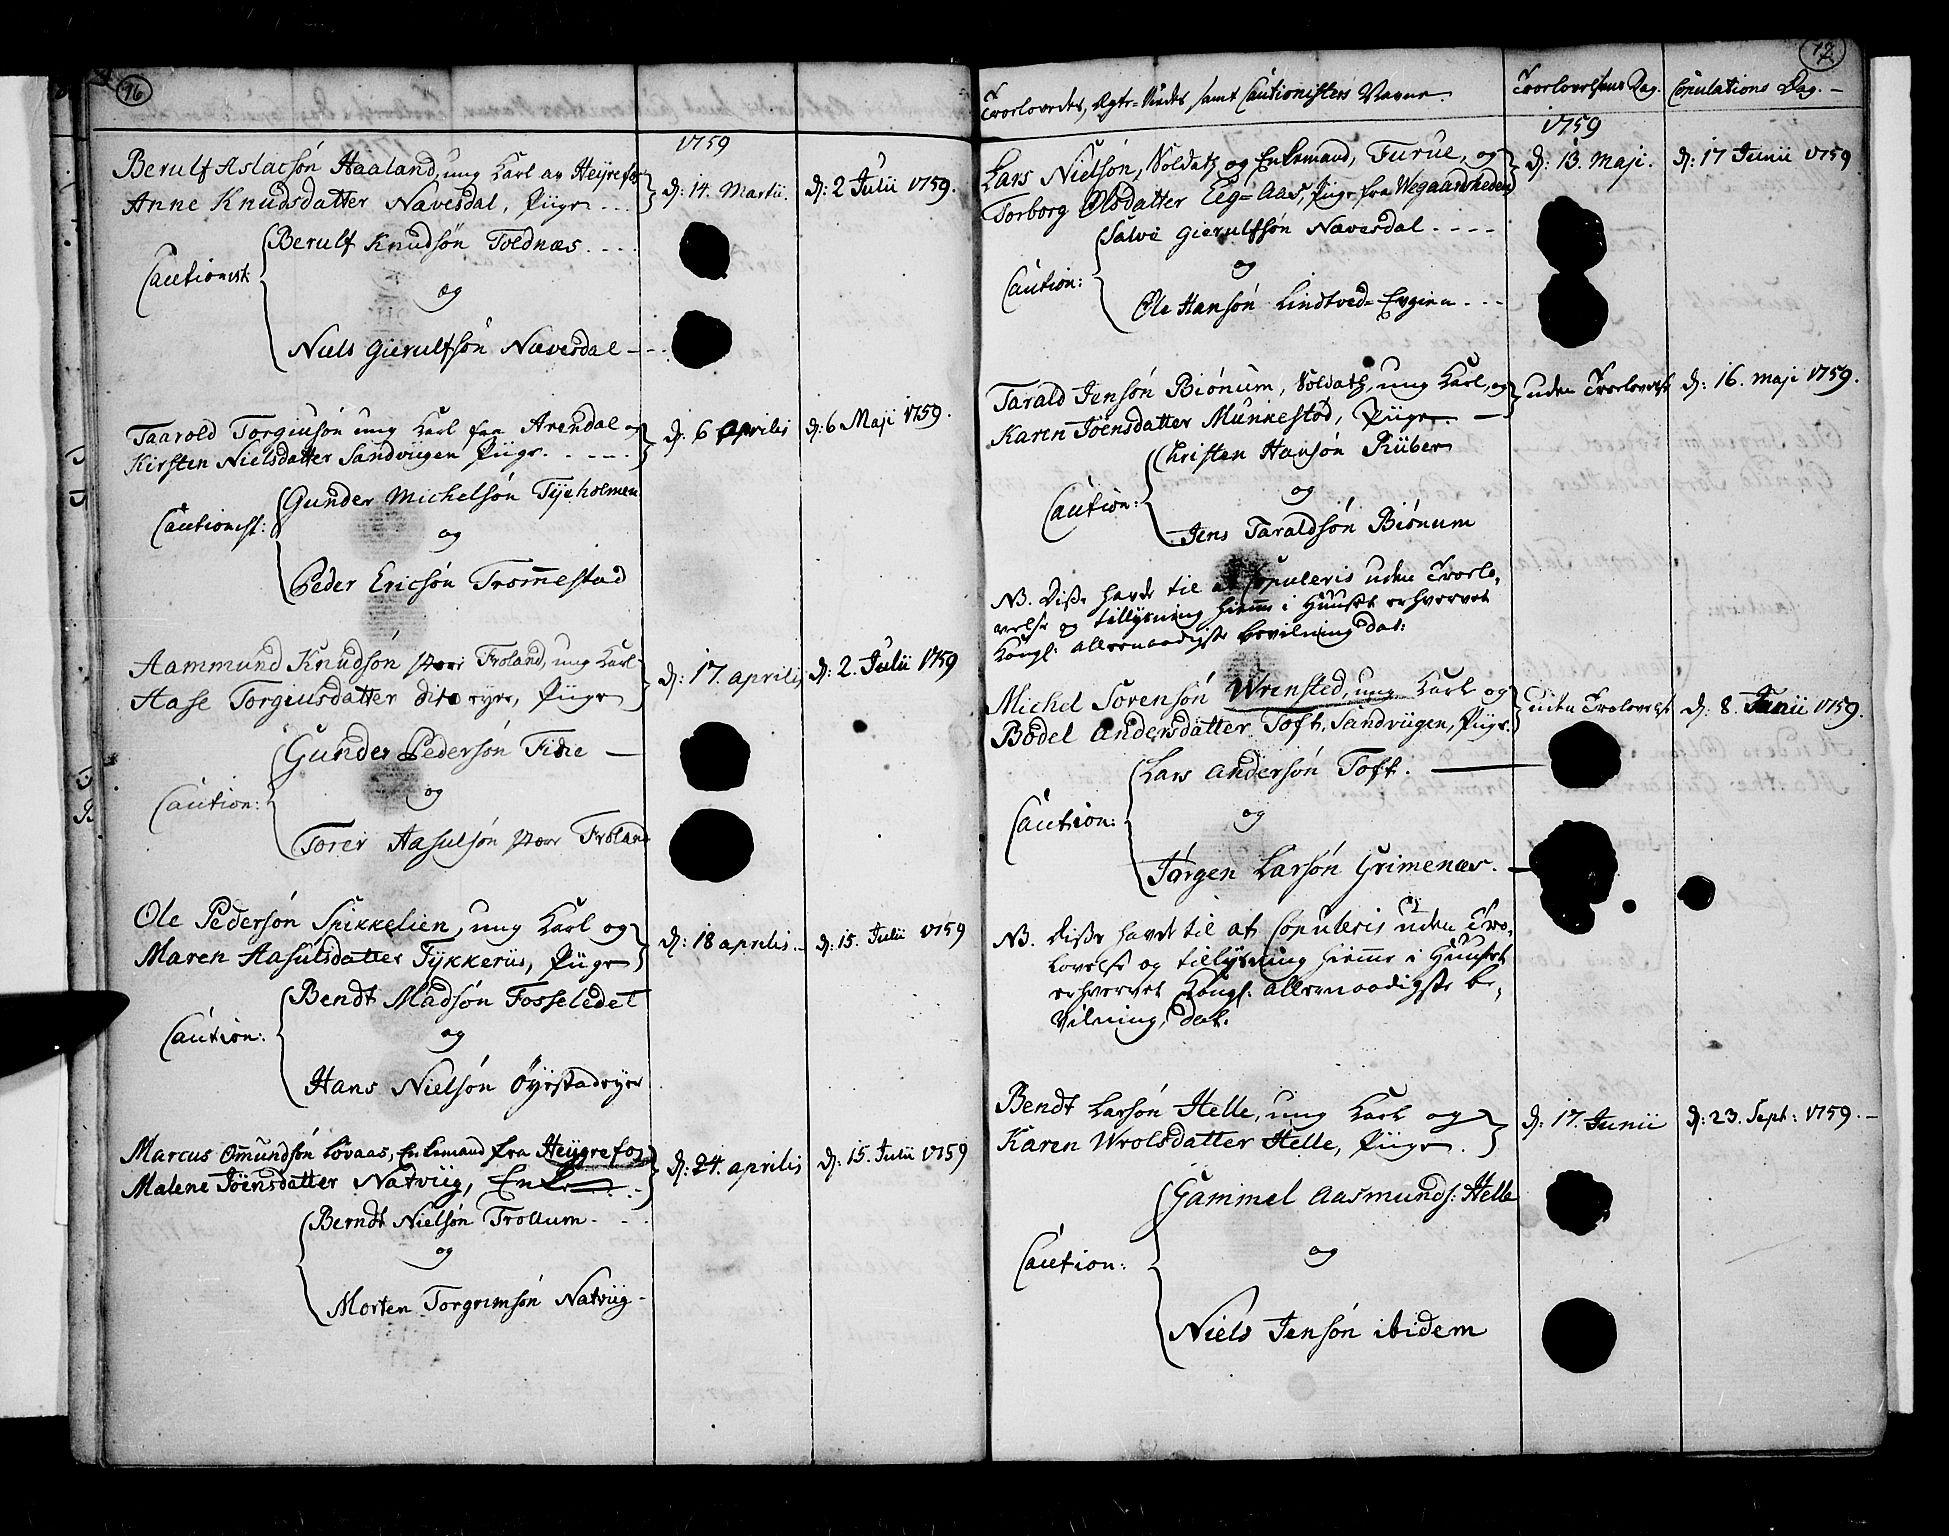 16
1759
Berulf Aslacsøn Haaland, ung Karl av Heyrefos
Anne Knudsdatter Nævesdal, Piige
d: 14. Martii. d: 2 Julii 1759.
Berulf Knudsøn Toldnæs
Cautionist:
og
Niels Gierulfsøn Nævesdal
Taarold Torgiusøn ung Karl fra Arendal og
Kirsten Nielsdatter Sandviigen Piige
d: 6 Aprilis d: 6 Maji 1759.
Gunder Michelsøn Tyeholmen
Cautionist:
og
Peder Ericsøn Trom̅estad
Aammund Knudsøn Froland, ung Karl
Aase Torgiusdatter dito eyer, Piige
d: 17. aprilis d: 2. Julii 1759
Gunder Pedersøn Fidie
Caution:
og
Torer Aasulsøn Froland
Ole Pedersøn Spikkelien, ung Karl og
Maren Aasulsdatter Tykkeriis, Piige
d: 18 aprilis d: 15. Julii 1759
Bendt Madsøn Fosseledet
Caution:
og
Hans Nielsøn Øyestadeyer
Marcus Om̅undsøn Løvaas, Enkemand fra Heyrefos
Malene Jöensdatter Natviig, Enke
d: 24. aprilis d: 15. Julii 1759
Berndt Nielsøn Trollum
og
Morten Torgrimsøn Natviig
17
Troelovedes, Egte-Viedes samt Cautionisters Navne. Troelovelsens Dag. Copulations Dag.
1759
Lars Nielsøn, Soldat og Enkemand, Furue, og
Torborg Olsdatter Eeg=Aas, Piige fra Wegaarsheden
d: 13. Maji. d: 17 Junii 1759
Salve Gierulfsøn Nævesdal
Caution:
og
Ole Hansøn Lindtved=Eygien
Tarald Jensøn Biønum, Soldat, ung Karl, og
Karen Jöensdatter Munkestød, Piige
uden Troelovelse d: 16. Maji 1759.
Christen Hansøn Rüber
Caution:
og
Jens Taraldsøn Biønum
NB. Disse havde til at Copuleris uden Troelo-
velse og tillysning hiem̅e i Huuset erhvervet
Kongl: allernaadigste bevilning dat:
Michel Sørensøn Wrensted, ung Karl og
Bodel Andersdatter Toft, Sandviigen, Piige
uden Trolovelse d: 8. Junii 1759.
Lars Andersøn Toft.
Caution:
og
Jørgen Larsøn Grimenæs.
NB. Disse havde til at Copuleris uden Tro-
lovelse og tillysning hiem̅e i Huuset
erhvervet Kongl: allernaadigste be-
vilning, dat.
Bendt Larsøn Helle, ung Karl og
Karen Wrolsdatter Helle, Piige.
d: 17. Junii d: 23. Sept: 1759.
Gammel Aasmunds: Helle
Caution:
og
Niels Jensøn ibidem